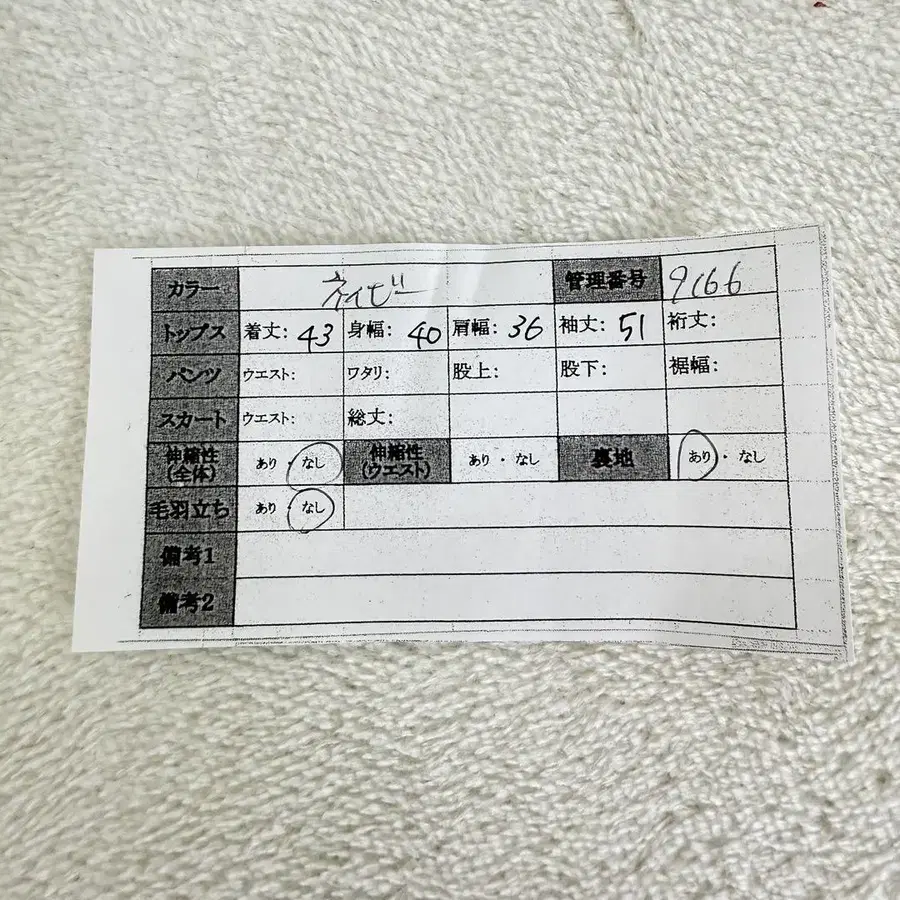 カラー ネイビー 管理番号 9166
トップス 着丈: 43 身幅: 40 肩幅: 36 袖丈: 51 裄丈:
パンツ ウエスト: ワタリ: 股上: 股下: 裾幅:
スカート ウエスト: 総丈:
伸縮性(全体) あり・なし 伸縮性(ウエスト) あり・なし 裏地 あり・なし
毛羽立ち あり・なし
備考1
備考2